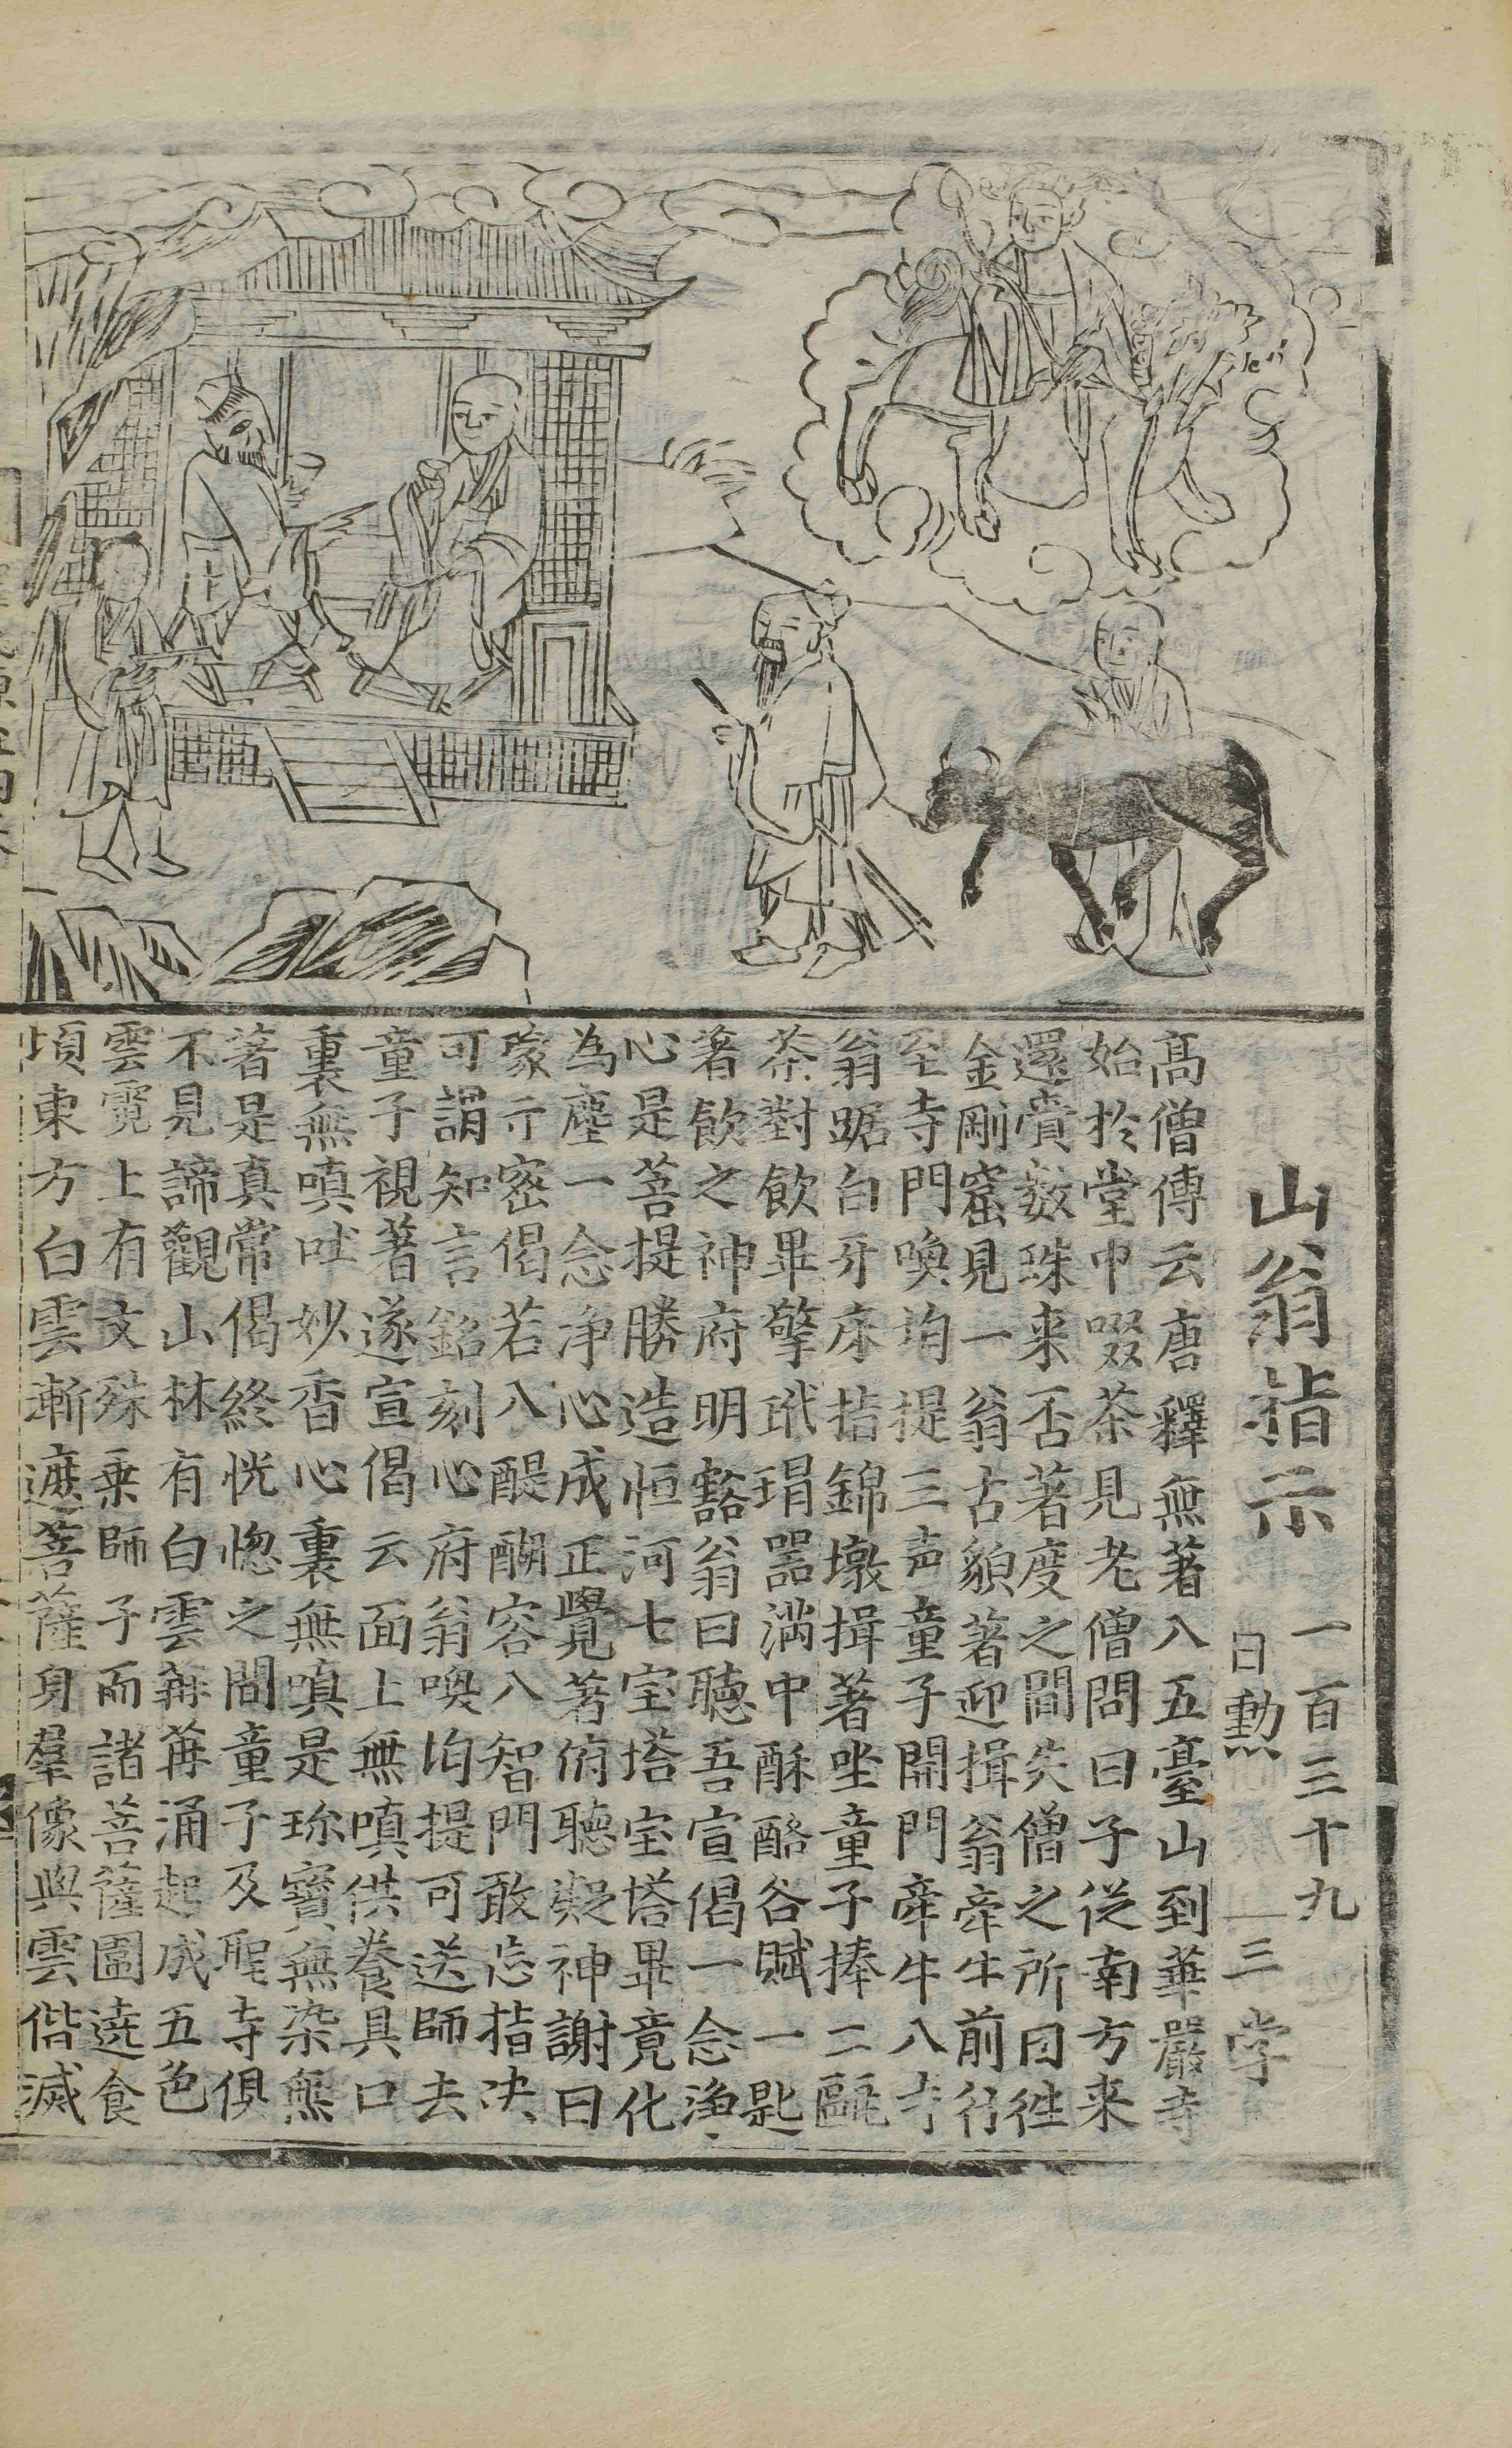 一百三十九
山翁指示
日勲 三 学
高僧傳云唐釋無著入五臺山到華嚴寺
始於堂中啜茶見老僧問曰子從南方来
還賫数珠来否著度之間失僧之所囙徃
金剛窟見一翁古貌著迎揖翁牵牛前行
至寺門喚均提三声童子開門牵牛入寺
翁踞白牙床指錦墩揖著坐童子捧二甌
茶對飲畢擎玳瑁噐满中酥酪各賦一匙
著飲之神府明豁翁曰聽吾宣偈一念浄
心是菩提勝造恒河七宝塔宝塔畢竟化
為塵一念净心成正覺著俯聽凝神謝曰
蒙示密偈若入醍醐容入智門敢忘指决
可謂知言銘刻心府翁喚均提可送師去
童子視著遂宣偈云面上無嗔供養具口
裏無嗔吐妙香心裏無嗔是珎寳無染無
著是真常偈終恍惚之間童子及聖寺俱
不見諦觀山林有白雲冉冉涌起成五色
雲霓上有文殊乗師子而諸菩薩圍遶食
頃東方白雲漸遮菩薩身羣像與雲偕滅